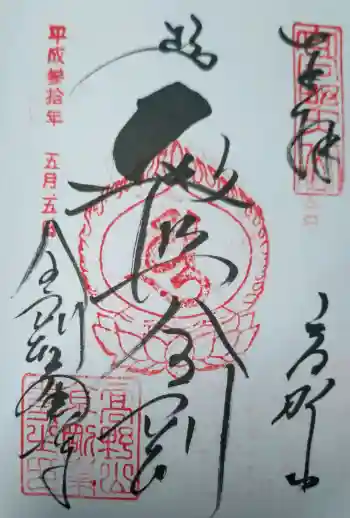 奉拝
高野山
遍照金剛
平成参拾年 五月五日
金剛峯寺